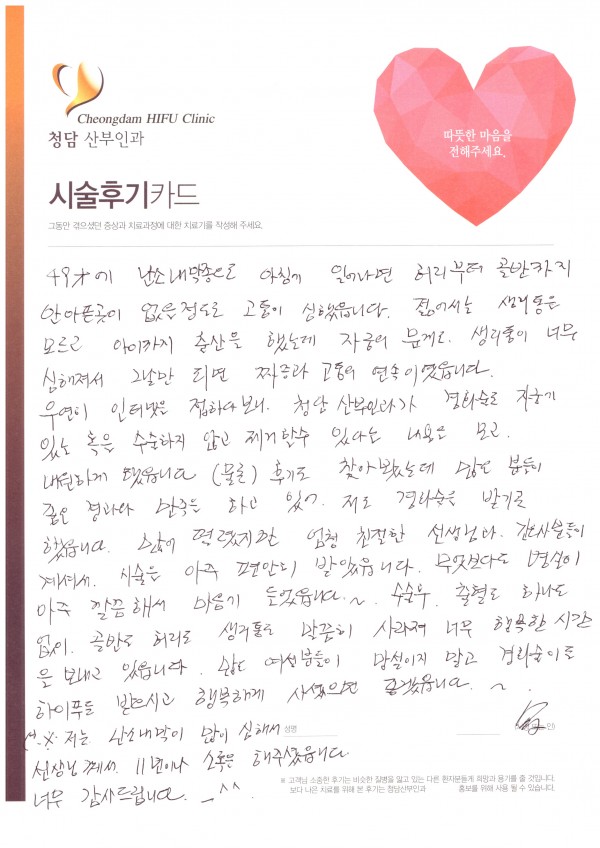 Cheongdam HIFU Clinic
청담 산부인과
따뜻한 마음을
전해주세요.
시술후기카드
그동안 겪으셨던 증상과 치료과정에 대한 치료기를 작성해 주세요.
49才에 난소내막종으로 아침에 일어나면 허리부터 골반까지
안아픈곳이 없을정도로 고통이 심했읍니다. 젊어서는 생리통은
모르고 아이까지 출산을 했는데 자궁의 문제로. 생리통이 너무
심해져서 그날만 되면 짜증과 고통의 연속이였읍니다.
우연히 인터넷을 접하다보니. 청담 산부인과가 경화술로 자궁에
있는 혹을 수술하지 않고 제거할수 있다는 내용을 보고.
내원하게 됐읍니다 (물론) 후기도 찾아봤는데 많은 분들이
좋은 결과와 만족을 하고 있어. 저도 경화술을 받기로
했읍니다. 많이 떨렸지만 엄청 친절한 선생님과. 간호사분들이
계셔서. 시술을 아주 편안히 받았읍니다. 무엇보다도 병실이
아주 깔끔해서 마음에 들었읍니다.~. 수술후. 출혈도 하나도
없이. 골반도 허리도 생리통도 말끔히 사라져 너무 행복한 시간
을 보내고 있읍니다. 많은 여성분들이 망설이지 말고 경화술이든
하이푸든 받으시고 행복하게 사셨으면 좋겠읍니다. ~.
※ 저는 난소내막이 많이 심해서 성명
선생님께서. 11번이나 소독을 해주셨읍니다
너무 감사드립니다. ^^
※ 고객님 소중한 후기는 비슷한 질병을 앓고 있는 다른 환자분들께 희망과 용기를 줄 것입니다.
보다 나은 치료를 위해 본 후기는 청담산부인과 홍보를 위해 사용 될 수 있습니다.